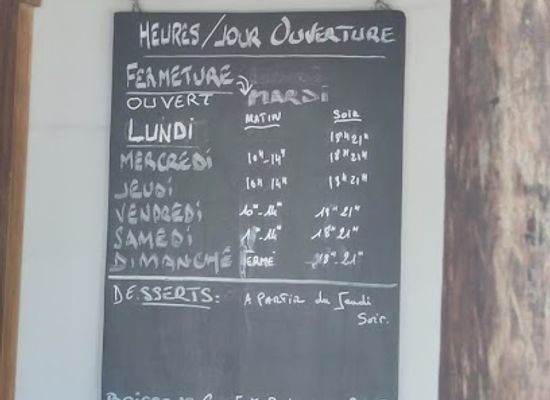 HEURES/JOUR OUVERTURE
FERMETURE
OUVERT MARDI
MATIN SOIR
LUNDI 18H 21H
MERCREDI 10H-14H 18H 21H
JEUDI 10H 14H 18H 21H
VENDREDI 10H-14H 18H-21H
SAMEDI 14H 18H 21H
DIMANCHE FERME 18H-21H
DESSERTS: A PARTIR du Jeudi
Soir.